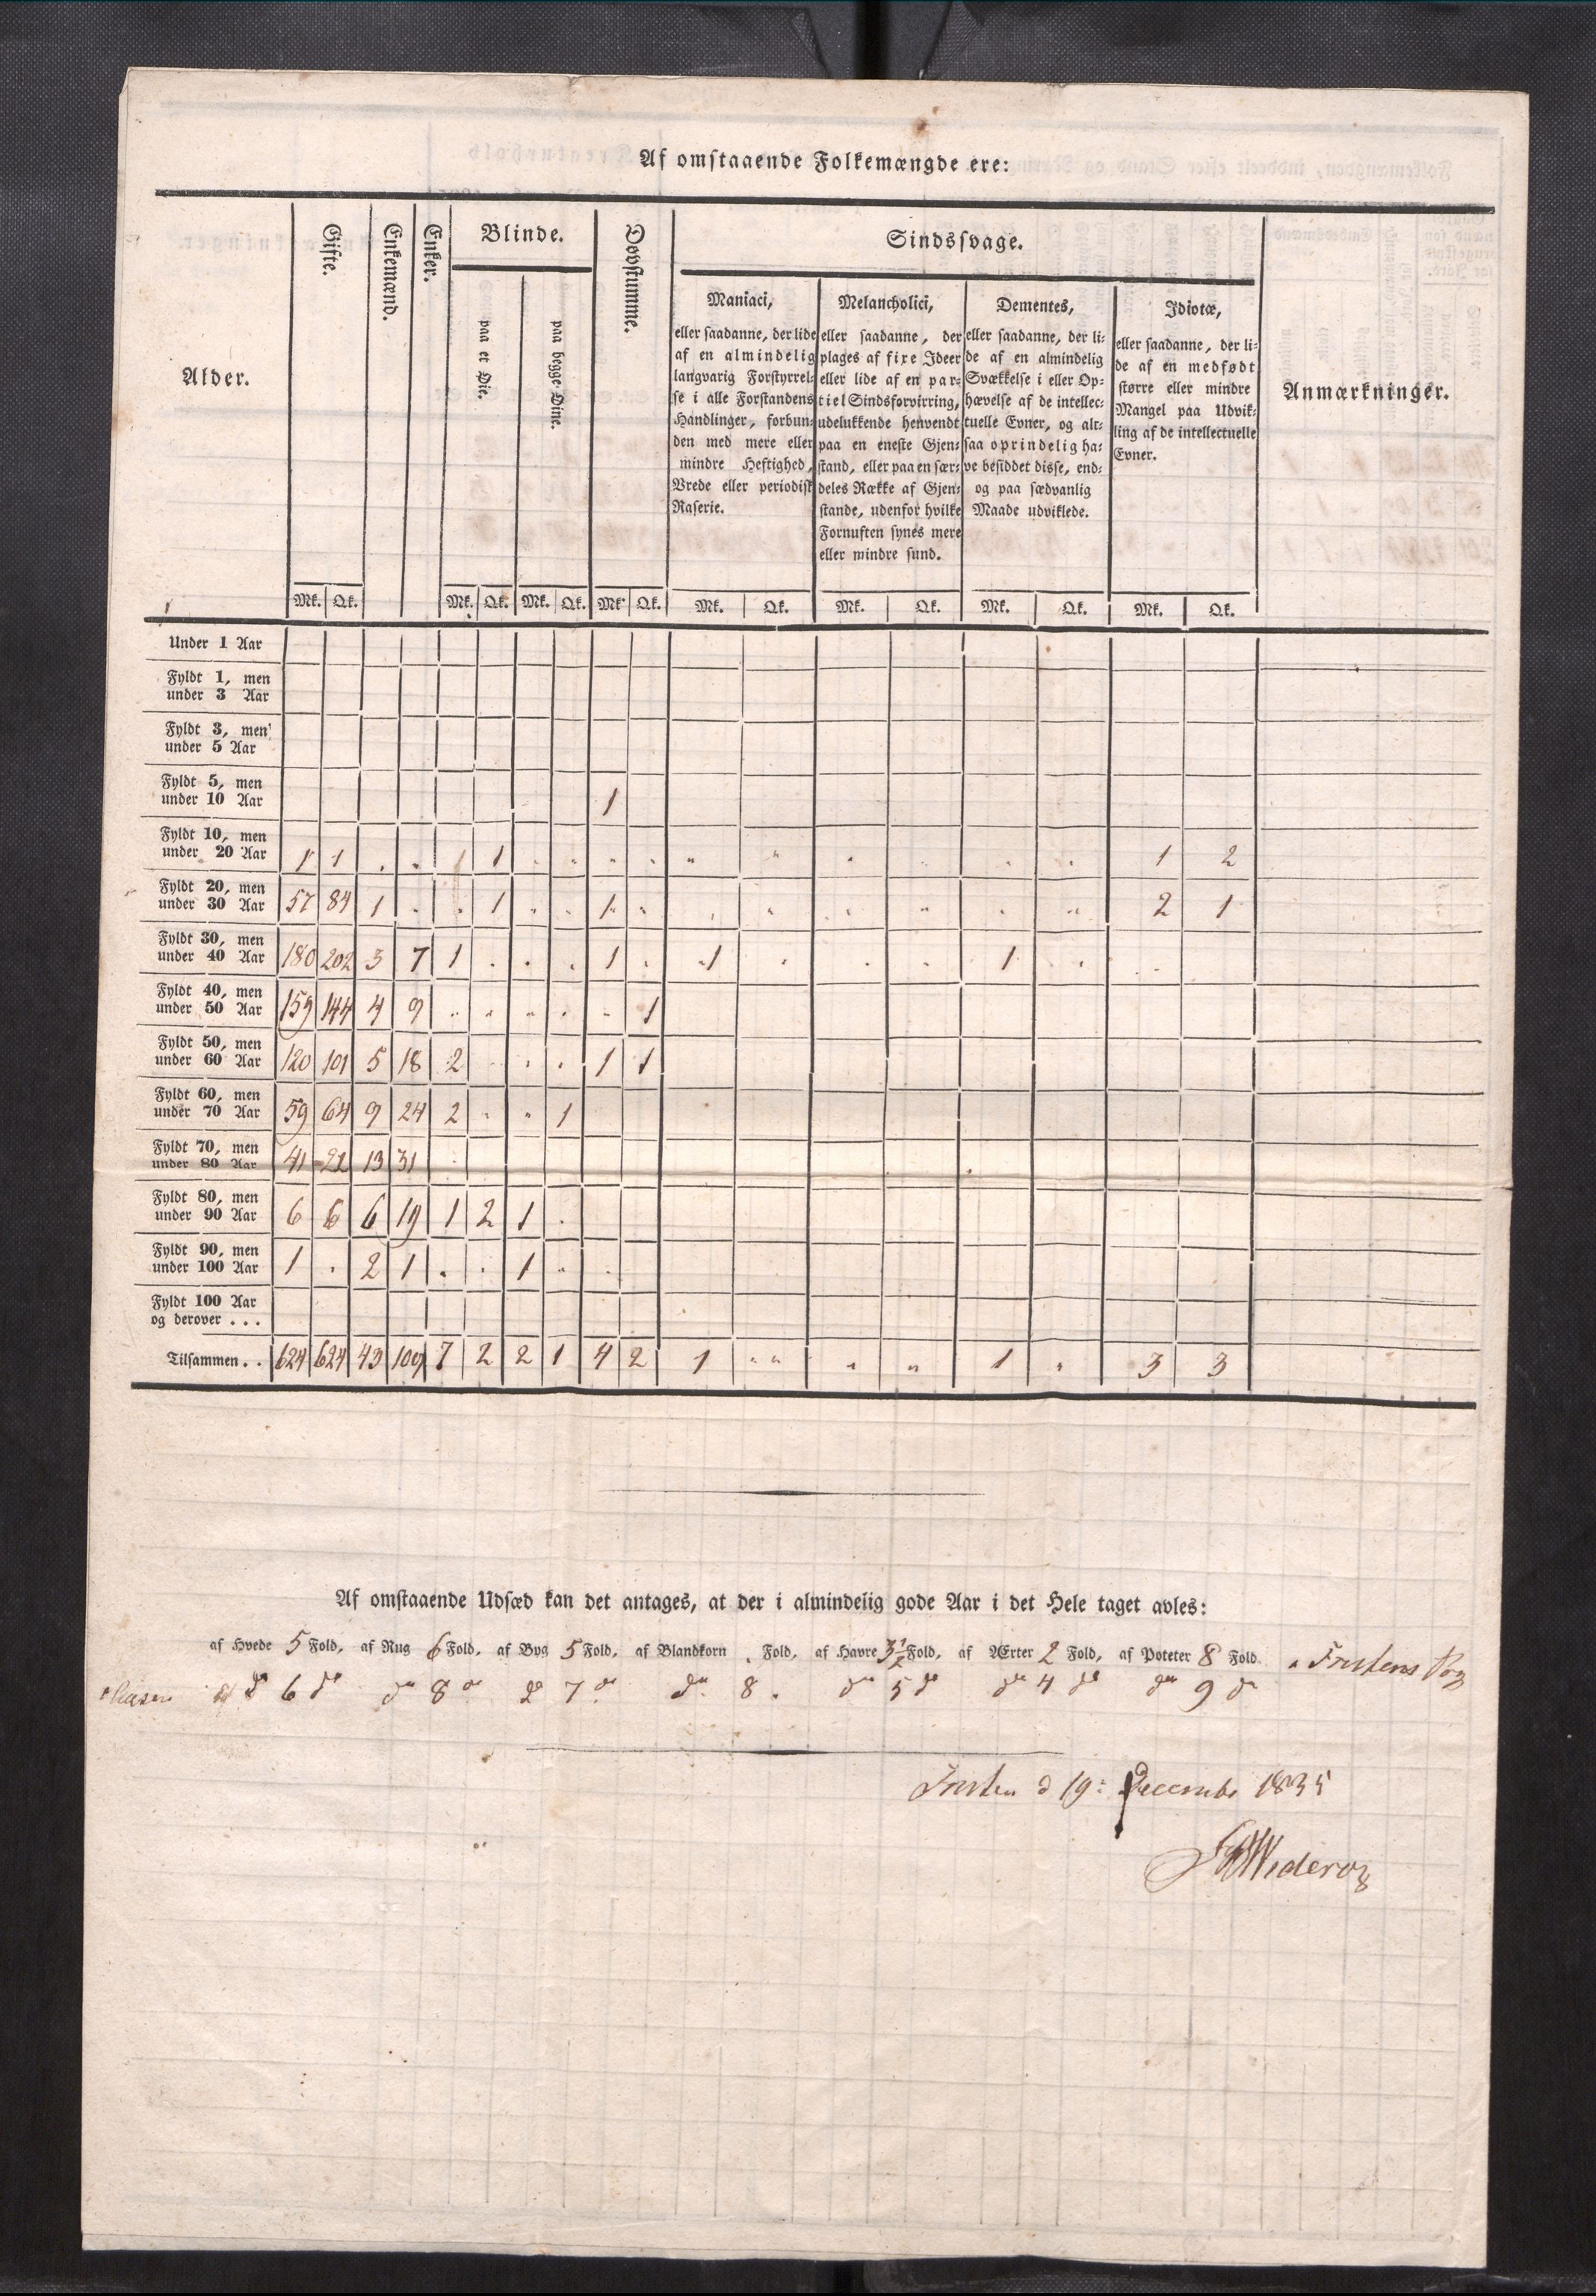 Af omstaaende Folkemængde ere:
Alder.
Gifte.
Enkemænd.
Enker.
Blinde.
paa et Øie.
paa begge Øine.
Døvstumme.
Sindssvage.
Maniaci,
eller saadanne, der lide
af en almindelig
langvarig Forstyrrel-
se i alle Forstandens
Handlinger, forbun-
den med mere eller
mindre Heftighed,
Vrede eller periodisk
Raserie.
Melancholici,
eller saadanne, der
plages af fixe Ideer
eller lide af en par-
tiel Sindsforvirring,
udelukkende henvendt
paa en eneste Gjen-
stand, eller paa en sær-
deles Række af Gjen-
stande, udenfor hvilke
Fornuften synes mere
eller mindre sund.
Dementes,
eller saadanne, der li-
de af en almindelig
Svækkelse i eller Op-
hævelse af de intellec-
tuelle Evner, og alt-
saa oprindelig ha-
ve besiddet disse, end-
og paa sædvanlig
Maade udviklede.
Idiotæ,
eller saadanne, der li-
de af en medfødt
større eller mindre
Mangel paa Udvik-
ling af de intellectuelle
Evner.
Anmærkninger.
Mk. Qk. Mk. Qk. Mk. Qk. Mk. Qk. Mk. Qk. Mk. Qk. Mk. Qk. Mk. Qk.
Under 1 Aar
Fyldt 1, men
under 3 Aar
Fyldt 3, men
under 5 Aar
Fyldt 5, men
under 10 Aar 1
Fyldt 10, men
under 20 Aar 1 1 . " 1 1 " " " " " " " " " " 1 2
Fyldt 20, men
under 30 Aar 57 84 1 " " 1 " " 1 " " " " " " " 2 1
Fyldt 30, men
under 40 Aar 180 202 3 7 1 " " " 1 " 1 " " " 1 " "
Fyldt 40, men
under 50 Aar 159 144 4 9 " " " " " 1
Fyldt 50, men
under 60 Aar 120 101 5 18 2 " " " 1 1
Fyldt 60, men
under 70 Aar 59 64 9 24 2 " " 1
Fyldt 70, men
under 80 Aar 41 22 13 31
Fyldt 80, men
under 90 Aar 6 6 6 19 1 2 1 "
Fyldt 90, men
under 100 Aar 1 " 2 1 " " 1 "
Fyldt 100 Aar
og derover . . .
Tilsammen . . 624 624 43 109 7 2 2 1 4 2 1 " " " " 1 " 3 3
Af omstaaende Udsæd kan det antages, at der i almindelig gode Aar i det Hele taget avles:
af Hvede 5 Fold, af Rug 6 Fold, af Byg 5 Fold, af Blandkorn . Fold, af Havre 3 1/2 Fold, af Ærter 2 Fold, af Poteter 8 Fold
do 6 do do 8 do do 7 do do 8 . do 5 do do 4 do do 9 do
d 19: Decembr 1835